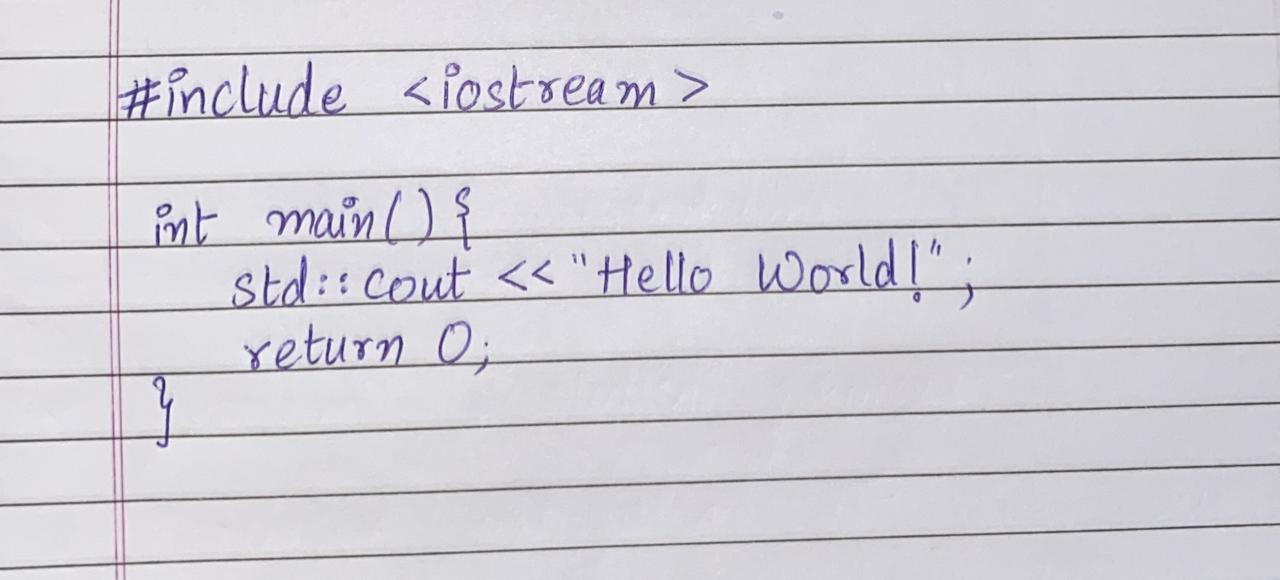 #include <iostream>
int main() {
std::cout << "Hello World!";
return 0;
}